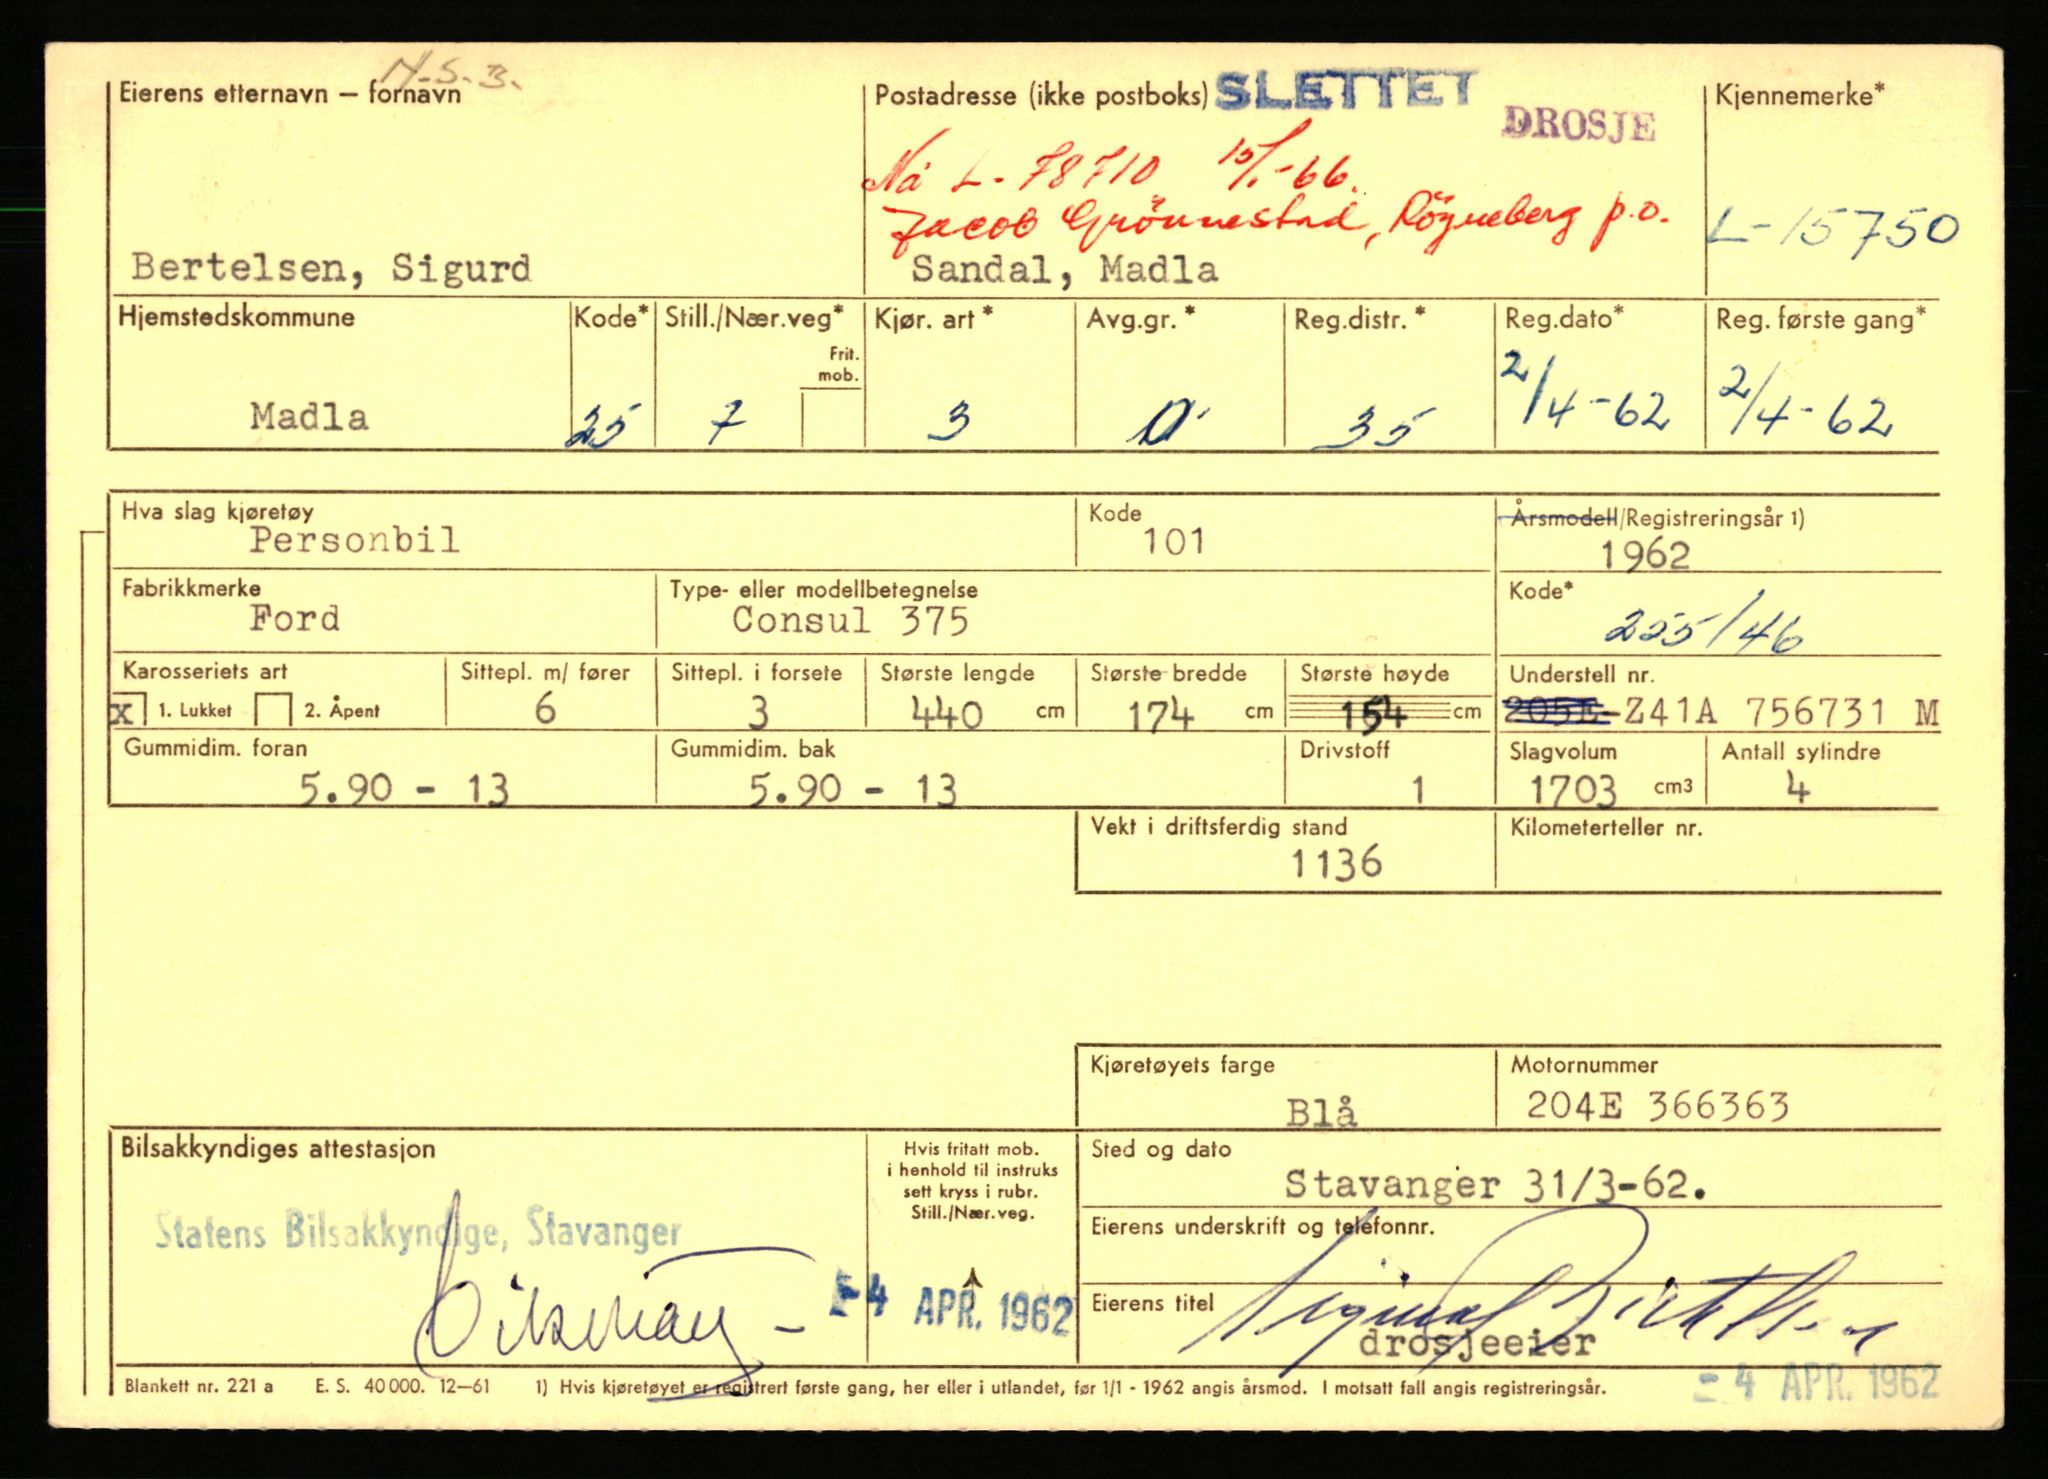 N.S.B.
Eierens etternavn – fornavn
Postadresse (ikke postboks)
SLETTET
DROSJE
Kjennemerke*
Nå L-78710 15/1-66.
Jacob Grönnestad, Rögneberg p.o.
L-15750
Bertelsen, Sigurd
Sandal, Madla
Hjemstedskommune Kode* Still./Nær.veg* Kjør. art* Avg.gr.* Reg.distr.* Reg.dato* Reg. første gang*
Frit.
mob.
Madla 35 7 3 0 35 2/4-62 2/4-62
Hva slag kjøretøy Kode Årsmodell/Registreringsår 1)
Personbil 101 1962
Fabrikkmerke Type- eller modellbetegnelse Kode*
Ford Consul 375 255/46
Karosseriets art Sittepl. m/ fører Sittepl. i forsete Største lengde Største bredde Største høyde Understell nr.
x 1. Lukket 2. Åpent 6 3 440 cm 174 cm 154 cm 205E-Z41A 756731 M
Gummidim. foran Gummidim. bak Drivstoff Slagvolum Antall sylindre
5.90 - 13 5.90 - 13 1 1703 cm3 4
Vekt i driftsferdig stand Kilometerteller nr.
1136
Kjøretøyets farge Motornummer
Blå 204E 366363
Bilsakkyndiges attestasjon
Hvis fritatt mob.
i henhold til instruks
sett kryss i rubr.
Still./Nær.veg.
Sted og dato
Stavanger 31/3-62.
Statens Bilsakkyndige, Stavanger
Eierens underskrift og telefonnr.
Sigurd Bertelsen
- 4 APR. 1962
Eierens titel
drosjeeier
Blankett nr. 221 a E. S. 40 000. 12—61 1) Hvis kjøretøyet er registrert første gang, her eller i utlandet, før 1/1 - 1962 angis årsmod. I motsatt fall angis registreringsår.
- 4 APR. 1962